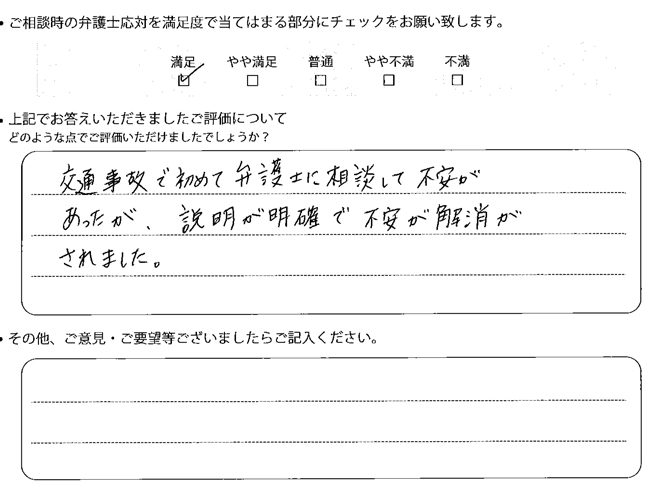 ・ご相談時の弁護士応対を満足度で当てはまる部分にチェックをお願い致します。
満足 やや満足 普通 やや不満 不満
・上記でお答えいただきましたご評価について
どのような点でご評価いただけましたでしょうか？
交通事故で初めて弁護士に相談して不安が
あったが、説明が明確で不安が解消が
されました。
・その他、ご意見・ご要望等ございましたらご記入ください。